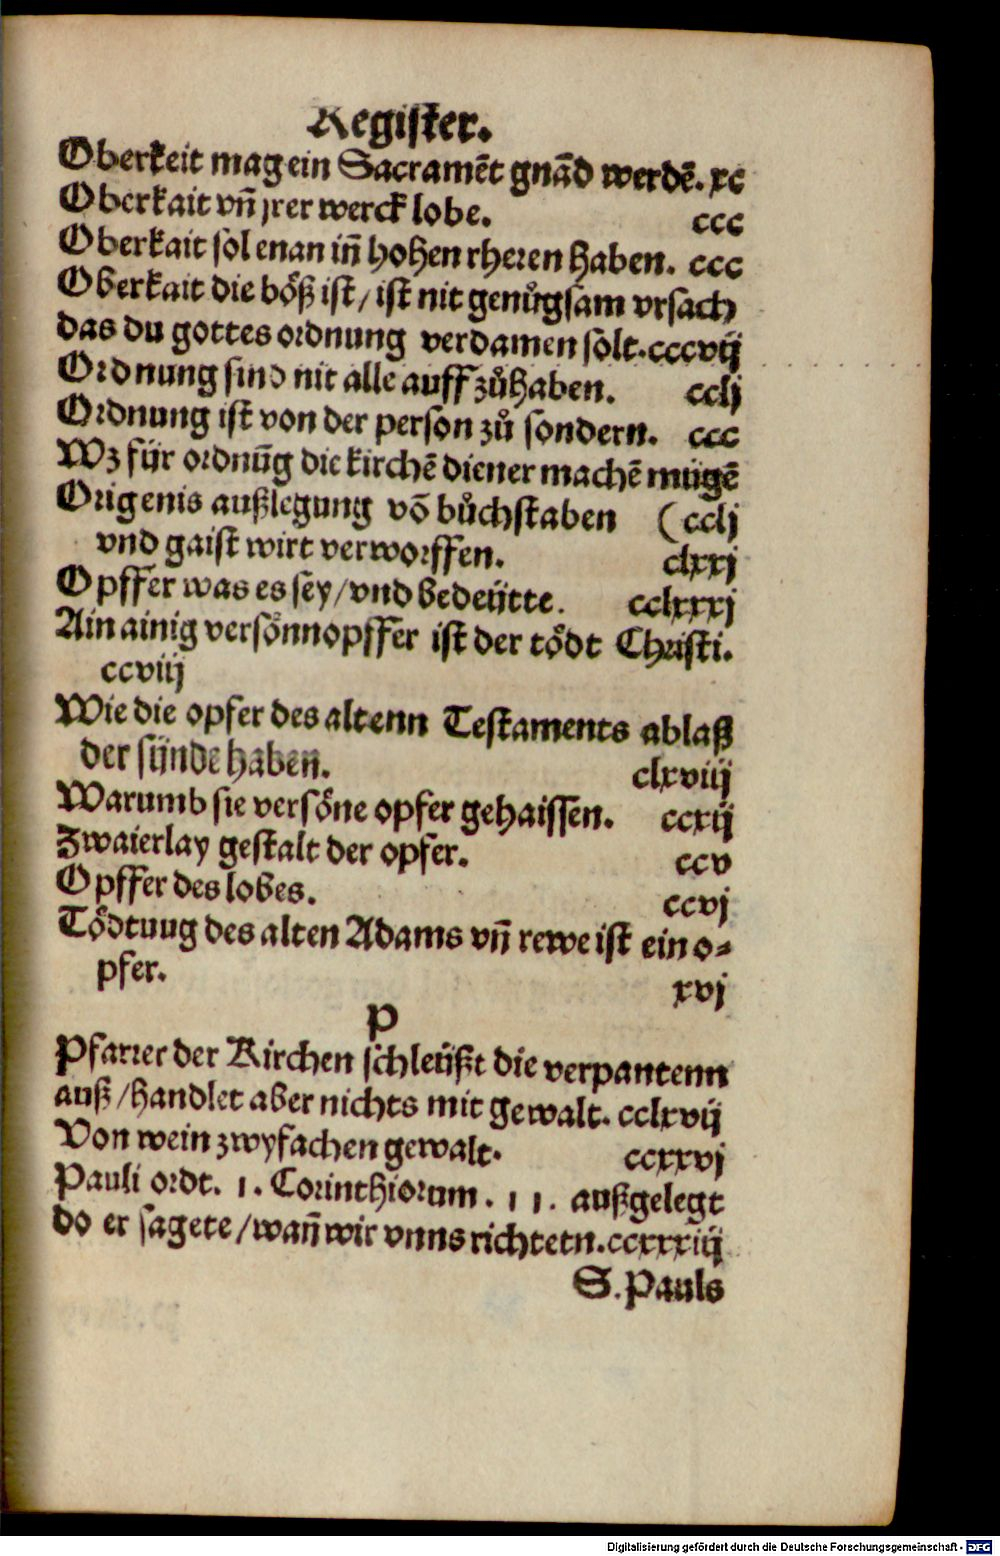 Register.
Oberkeit mag ein Sacramēt gnād werdē. xc
Oberkait vñ jrer werck lobe. ccc
Oberkait sol enan iñ hohen rheren haben. ccc
Oberkait die böß ist / ist nit genůgsam vrsach
das du gottes ordnung verdamen solt. cccvij
Ordnung sind nit alle auff zůhaben. cclj
Ordnung ist von der person zů sondern. ccc
Wz für ordnūg die kirchē diener machē mügē
Origenis außlegung vō bůchstaben (cclj
vnd gaist wirt verworffen. clxxj
Opffer was es sey / vnd bedeütte. cclxxxj
Ain ainig versönnopffer ist der tödt Christi.
ccviij
Wie die opfer des altenn Testaments ablaß
der sünde haben. clxviij
Warumb sie versöne opfer gehaissen. ccxij
Zwaierlay gestalt der opfer. ccv
Opffer des lobes. ccvj
Tödtuug des alten Adams vñ rewe ist ein o⸗
pfer. xvj
P
Pfarrer der Kirchen schleüßt die verpantenn
auß / handlet aber nichts mit gewalt. cclxvij
Von wein zwyfachen gewalt. ccxxvj
Pauli ordt. 1. Corinthiorum. 11. außgelegt
do er sagete / wañ wir vnns richtetn. ccxxxiij
S. Pauls
Digitalisierung gefördert durch die Deutsche Forschungsgemeinschaft - DFG